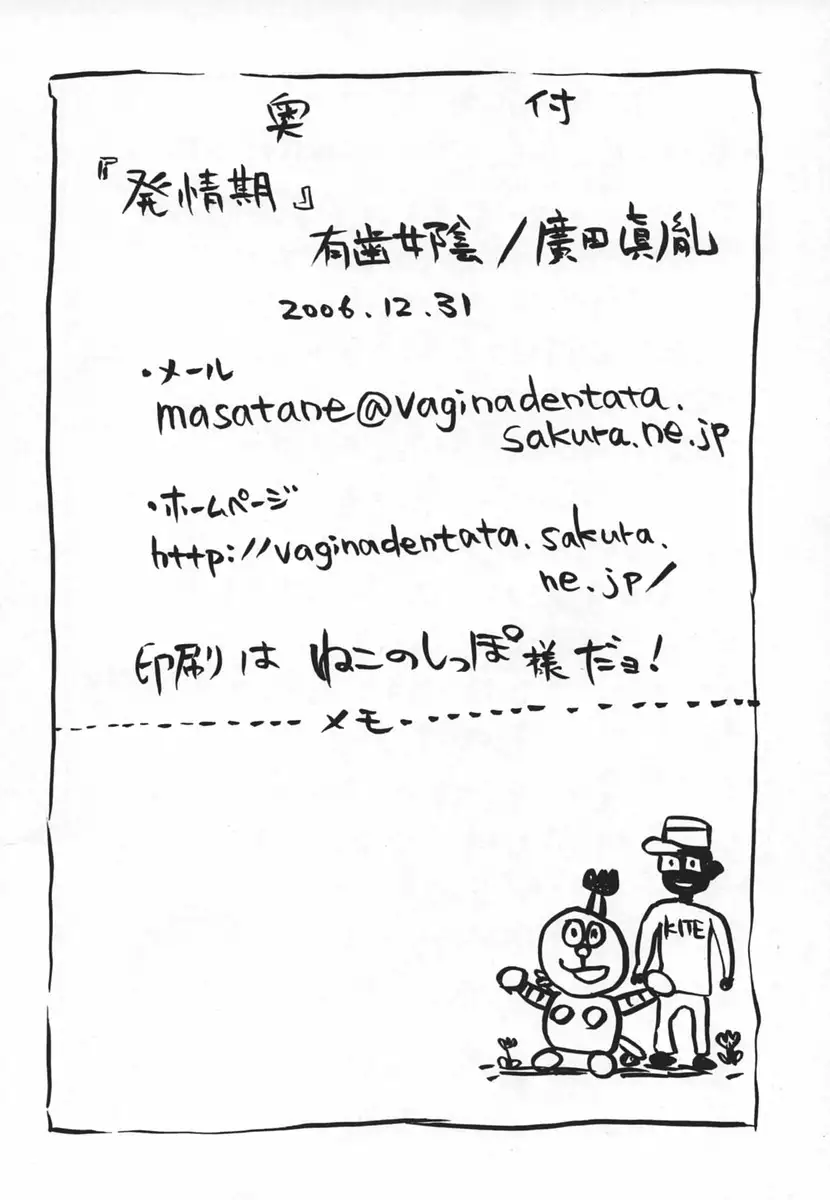 奥付
『発情期』
有歯女陰/廣田眞胤
2006.12.31
・メール
masatane@vaginadentata.
sakura.ne.jp
・ホームページ
http://vaginadentata.sakura.
ne.jp/
印刷は ねこのしっぽ様だョ!
メモ
KITE